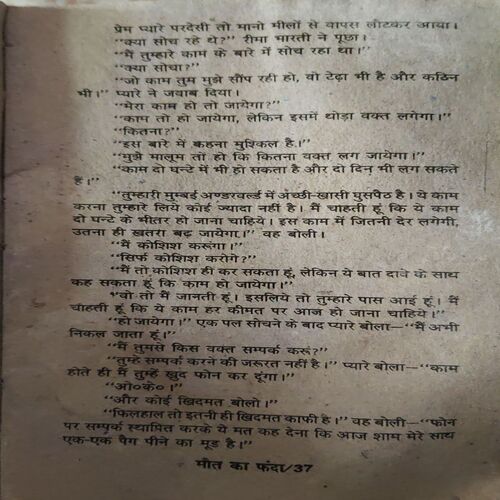 प्रेम प्यारे परदेसी तो मानो मीलों से वापस लौटकर आया।
‘‘क्या सोच रहे थे?’’ रीमा भारती ने पूछा।
‘‘मैं तुम्हारे काम के बारे में सोच रहा था।’’
‘‘क्या सोचा?’’
‘‘जो काम तुम मुझे सौंप रही हो, वो टेढ़ा भी है और कठिन
भी।’’ प्यारे ने जवाब दिया।
‘‘मेरा काम हो तो जायेगा?’’
‘‘काम तो हो जायेगा, लेकिन इसमें थोड़ा वक्त लगेगा।’’
‘‘कितना?’’
‘‘इस बारे में कहना मुश्किल है।’’
‘‘मुझे मालूम तो हो कि कितना वक्त लग जायेगा।’’
‘‘काम दो घन्टे में भी हो सकता है और दो दिन भी लग सकते
हैं।’’
‘‘तुम्हारी मुम्बई अण्डरवर्ल्ड में अच्छी-खासी घुसपैठ है। ये काम
करना तुम्हारे लिये कोई ज्यादा नहीं है। मैं चाहती हूं कि ये काम
दो घन्टे के भीतर हो जाना चाहिये। इस काम में जितनी देर लगेगी,
उतना ही खतरा बढ़ जायेगा।’’ वह बोली।
‘‘मैं कोशिश करूंगा।’’
‘‘सिर्फ कोशिश करोगे?’’
‘‘मैं तो कोशिश ही कर सकता हूं, लेकिन ये बात दावे के साथ
कह सकता हूं कि काम हो जायेगा।’’
‘‘वो तो मैं जानती हूं। इसलिये तो तुम्हारे पास आई हूं। मैं
चाहती हूं कि ये काम हर कीमत पर आज हो जाना चाहिये।’’
‘‘हो जायेगा।’’ एक पल सोचने के बाद प्यारे बोला—‘‘मैं अभी
निकल जाता हूं।’’
‘‘मैं तुमसे किस वक्त सम्पर्क करूं?’’
‘‘तुम्हें सम्पर्क करने की जरूरत नहीं है।’’ प्यारे बोला—‘‘काम
होते ही मैं तुम्हें खुद फोन कर दूंगा।’’
‘‘ओ०के०।’’
‘‘और कोई खिदमत बोलो।’’
‘‘फिलहाल तो इतनी ही खिदमत काफी है।’’ वह बोली—‘‘फोन
पर सम्पर्क स्थापित करके ये मत कह देना कि आज शाम मेरे साथ
एक-एक पैग पीने का मूड है।’’
मौत का फंदा/37